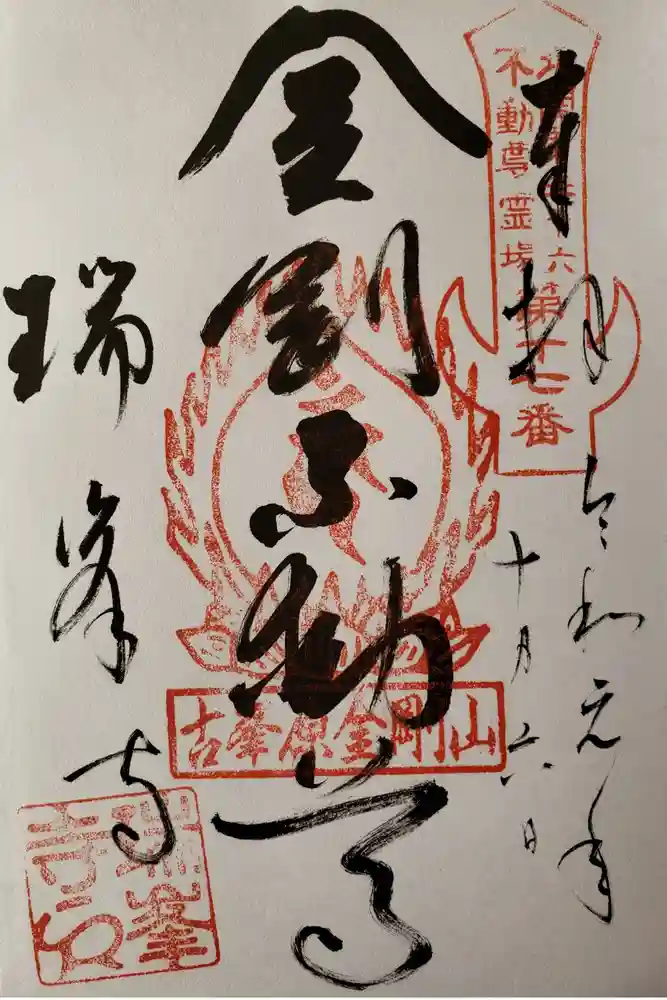 奉拝
北関東三十六
不動尊霊場
第十七番
令和元年
十月六日
金剛不動尊
古峯原金剛山
瑞峯寺
瑞峯
寺印